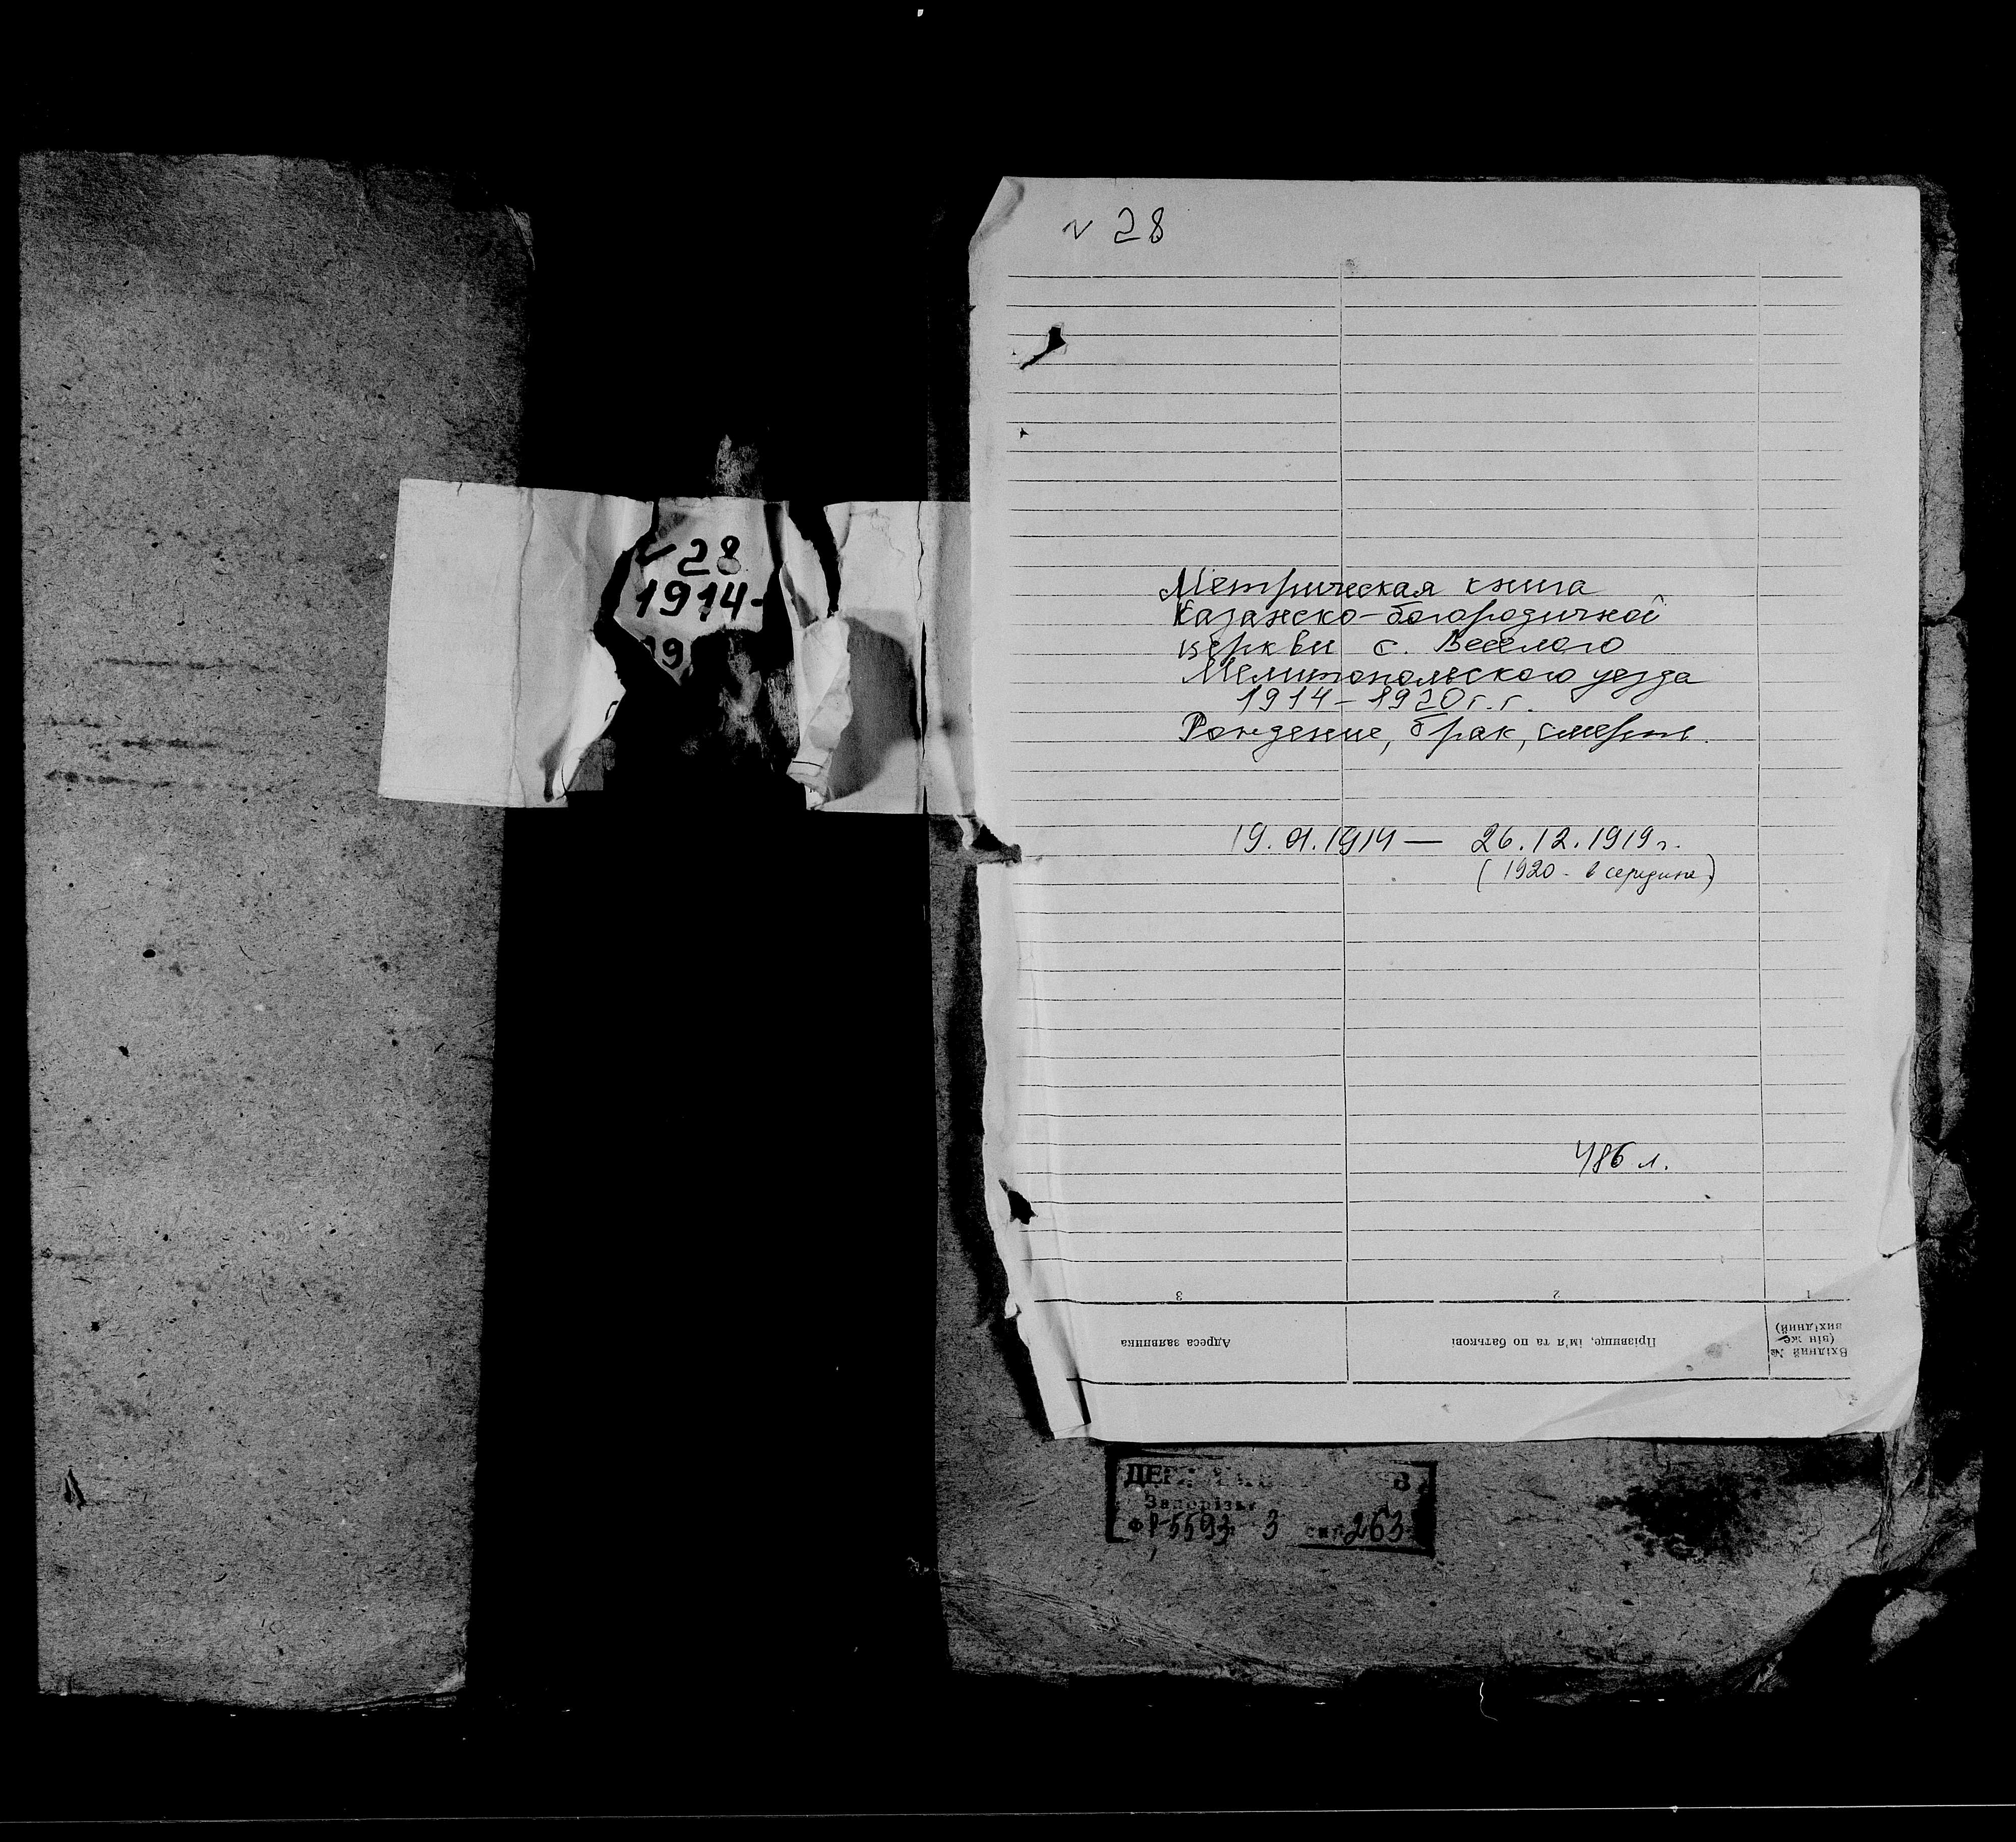 № 28
1914-
19
№ 28
Метрическая книга
Казанско-богородичной
церкви с. Веселого
Мелитопольского уезда
1914-1920 г.г.
Рождение, брак, смерть.
19.01.1914 — 26.12.1919 г.
(1920 - в середине)
486 л.
3 2 1
Адреса заявника
Прізвище, ім'я та по батькові
Вхідний №
(він же
вихідний)
Ф Р-5593 3 263